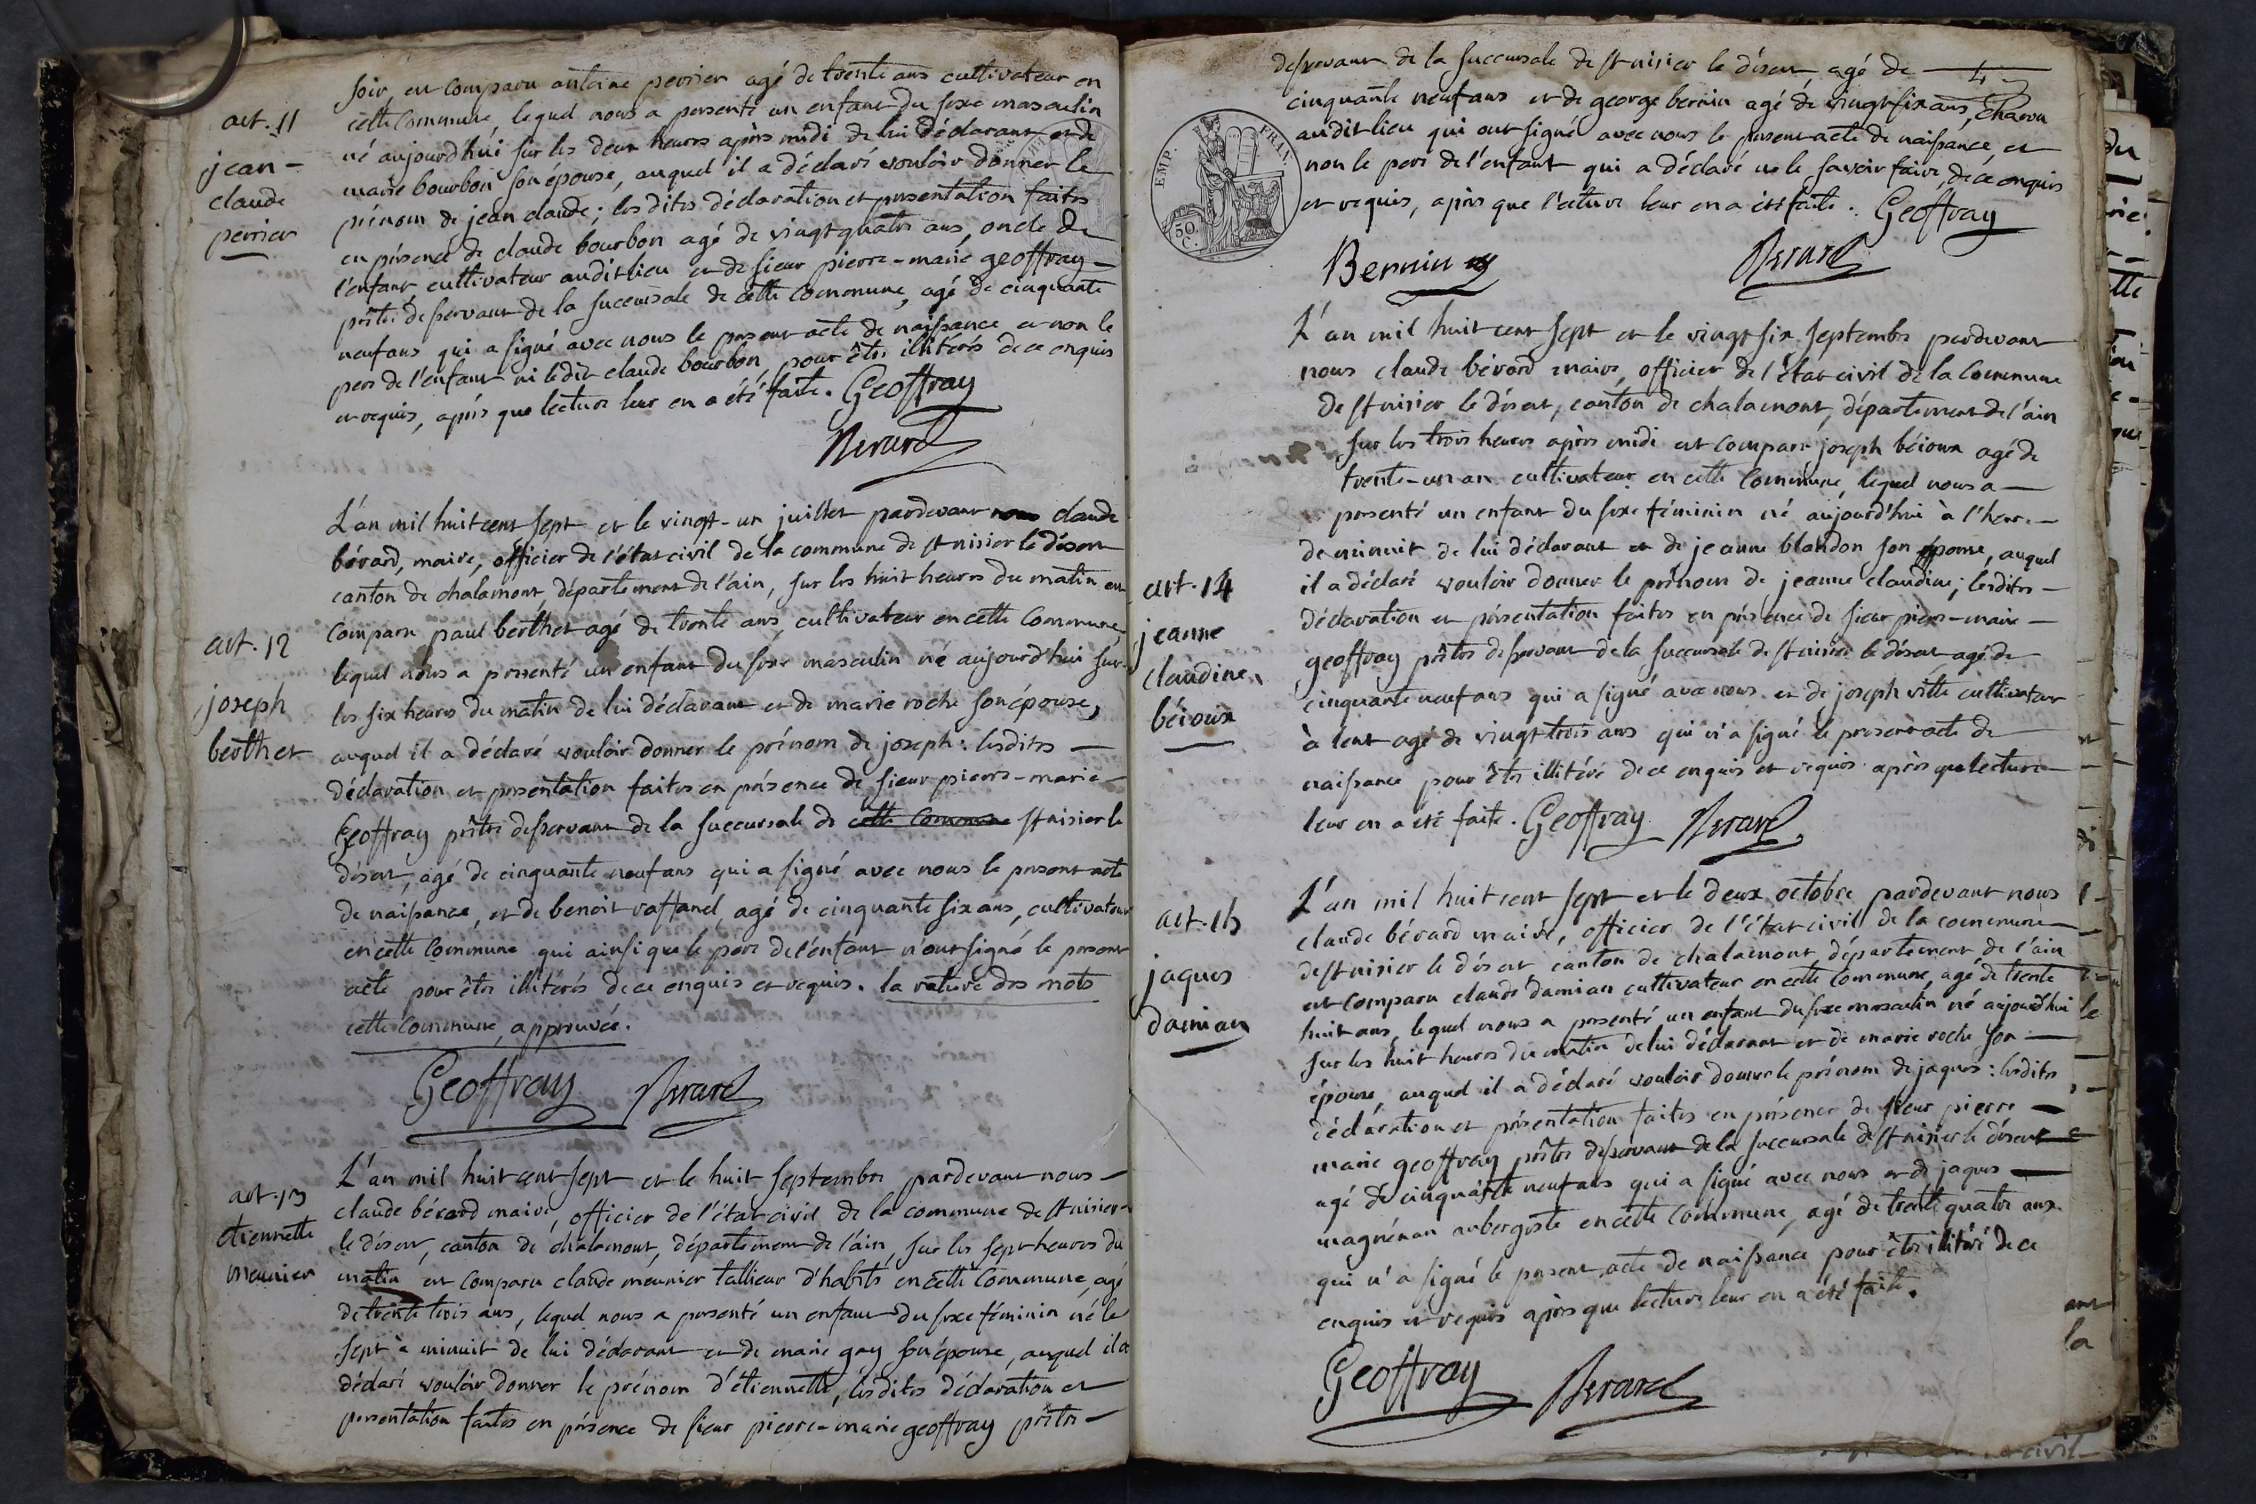 art. 11
jean-
claude
perrier
soir, est comparu antoine perrier agé de trente ans cultivateur en
cette commune, lequel nous a presenté un enfant du sexe masculin
né aujourd'hui sur les deux heures après midi de lui déclarant et de
marie bourbon son épouse, auquel il a déclaré vouloir donner le
prénom de jean claude; les dites déclaration et presentation faites
en présence de claude bourbon agé de vingt quatre ans, oncle de
l'enfant cultivateur audit lieu et de sieur pierre-marie geoffray
prêtre desservant de la succursale de cette commune, agé de cinquante
neuf ans qui a signé avec nous le present acte de naissance et non le
pere de l'enfant ni ledit claude bourbon, pour être illitérés de ce enquis
et requis, après que lecture leur en a été faite. Geoffray
Berard
art. 12
joseph
berthet
L'an mil huit cent sept et le vingt-un juillet pardevant nous claude
bérard, maire, officier de l'état civil de la commune de st nisier le désert
canton de chalamont, département de l'ain, sur les huit heures du matin est
comparu paul berthet agé de trente ans, cultivateur en cette commune,
lequel nous a presenté un enfant du sexe masculin né aujourd'hui sur
les six heures du matin de lui déclarant et de marie roche son épouse,
auquel il a déclaré vouloir donner le prénom de joseph: lesdites
déclaration et presentation faites en présence de sieur pierre-marie
Geoffray prêtre desservant de la succursale de cette commune st nisier le
désert, agé de cinquante neuf ans qui a signé avec nous le present acte
de naissance, et de benoit raffanel, agé de cinquante six ans, cultivateur
en cette commune qui ainsi que le père de l'enfant n'ont signé le present
acte pour être illitérés de ce enquis et requis. la rature des mots
cette commune, approuvée.
Geoffray Berard
art. 13
etiennette
meunier
L'an mil huit cent sept et le huit septembre pardevant nous
claude bérard maire, officier de l'état civil de la commune de st nisier
le désert, canton de chalamont, département de l'ain, sur les sept heures du
matin est comparu claude meunier tallieur d'habits en cette commune, agé
de trente trois ans, lequel nous a presenté un enfant du sexe féminin né le
sept à minuit de lui déclarant et de marie gay son épouse, auquel il a
déclaré vouloir donner le prénom d'étiennette, lesdites déclaration et
presentation faites en présence de sieur pierre-marie geoffray prêtre
desservant de la succursale de st nisier le désert agé de
cinquante neuf ans et de george bernin agé de vingt six ans,
audit lieu qui ont signé avec nous le present acte de naissance, et
non le pere de l'enfant qui a déclaré ne le savoir faire, de ce enquis
et requis, après que lecture leur en a été faite. Geoffray
EMP. FRAN.
50 C.
Bernin Berard
L'an mil huit cent sept et le vingt six septembre pardevant
nous claude bérard maire, officier de l'état civil de la commune
de st nisier le désert, canton de chalamont, département de l'ain
sur les trois heures après midi est comparu joseph béioux agé de
trente-un an cultivateur en cette commune, lequel nous a
presenté un enfant du sexe féminin né aujourd'hui à l'heure
de minuit de lui déclarant et de jeanne blandon son épouse, auquel
il a déclaré vouloir donner le prénom de jeanne claudine; lesdites
déclaration et présentation faites en présence de sieur pierre-marie
geoffray prêtre desservant de la succursale de st nisier le désert agé de
cinquante neuf ans qui a signé avec nous et de joseph ville cultivateur
à lent agé de vingt trois ans qui n'a signé le present acte de
naissance pour être illitéré de ce enquis et requis après que lecture
leur en a été faite. Geoffray Berard
art. 14
jeanne
claudine
béioux
art. 15
jaques
damian
L'an mil huit cent sept et le deux octobre pardevant nous
claude bérard maire, officier de l'état civil de la commune
de st nisier le désert canton de chalamont, département de l'ain
est comparu claude damian cultivateur en cette commune, agé de trente
huit ans, lequel nous a presenté un enfant du sexe masculin né aujourd'hui
sur les huit heures du matin de lui déclarant et de marie roche son
épouse, auquel il a déclaré vouloir donner le prénom de jaques: lesdites
déclaration et présentation faites en présence de sieur pierre
marie geoffray prêtre desservant de la succursale de st nisier le désert
agé de cinquante neuf ans qui a signé avec nous et de jaques
magnénan aubergiste en cette commune, agé de trente quatre ans
qui n'a signé le present acte de naissance pour être illitéré de ce
enquis et requis après que lecture leur en a été faite.
Geoffray Berard
la
civil